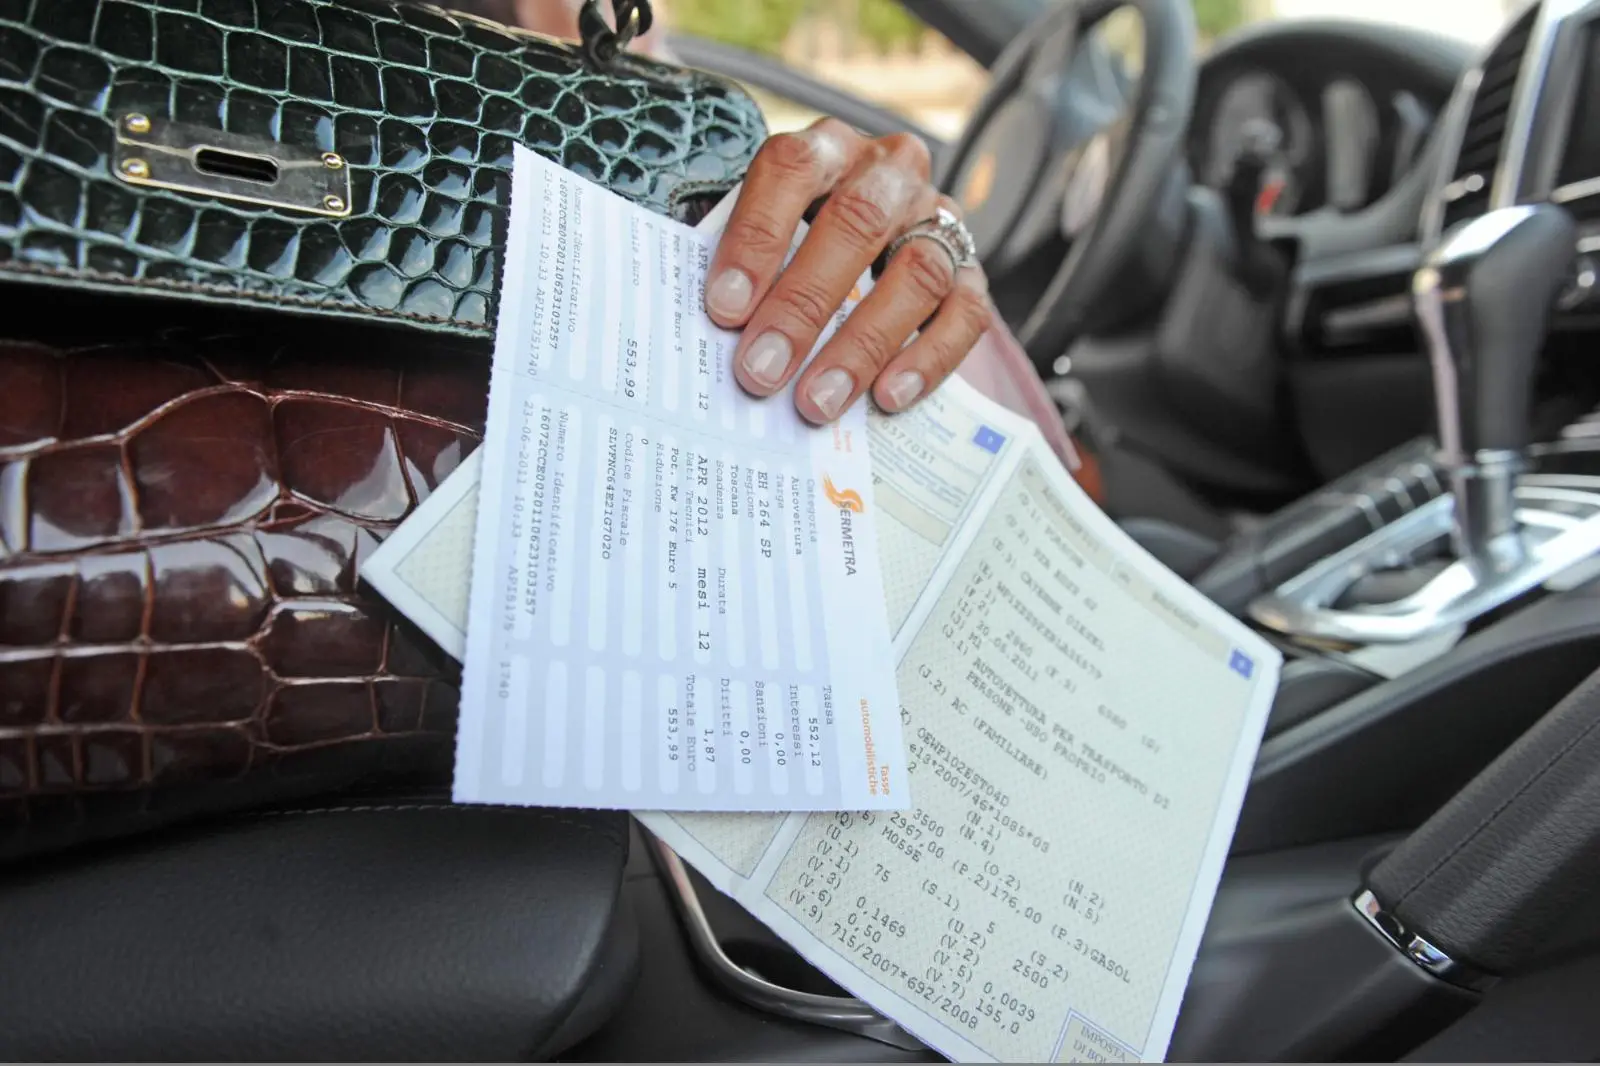 Numero Identificativo
16072CCE002011062310325​7
23-06-2011 10:33 API51751740
Totale Euro
553,99
Riduzione
Pot. Kw 176 Euro 5
Dati Tecnici
APR 2012 mesi 12
Durata
SERMETRA
Tasse
automobilistiche
Categoria
Autovettura
Targa
EH 264 SP
Regione
Toscana
Scadenza Durata
APR 2012 mesi 12
Dati Tecnici
Pot. Kw 176 Euro 5
Riduzione
0
Codice Fiscale
SLVFNC64E21G702O
Numero Identificativo
16072CCE0020110623103257
23-06-2011 10:33 - API5175 - 1740
Tassa
552,12
Interessi
0,00
Sanzioni
0,00
Diritti
1,87
Totale Euro
553,99
(D.3) CAYENNE DIESEL
(F.2) 2960 (F.3)
(I) 20.06.2011
(J) M1 AUTOVETTURA PER TRASPORTO DI
(J.1) PERSONE -USO PROPRIO
(J.2) AC (FAMILIARE)
0EWP102EST04D
(K) e13*2007/46*1085*03
2 (N.1) (N.2)
(N.4) (N.5)
3500 (O.2)
2967,00 (P.2)176,00 (P.3)GASOL
M059E
(Q) (S.1) 5 (S.2)
(U.1) 75 (U.2) 2500
(V.1) (V.2)
(V.3) 0,1469 (V.5) 0,0039
(V.6) 0,50 (V.7) 195,0
(V.9) 715/2007*692/2008
IMPOSTA